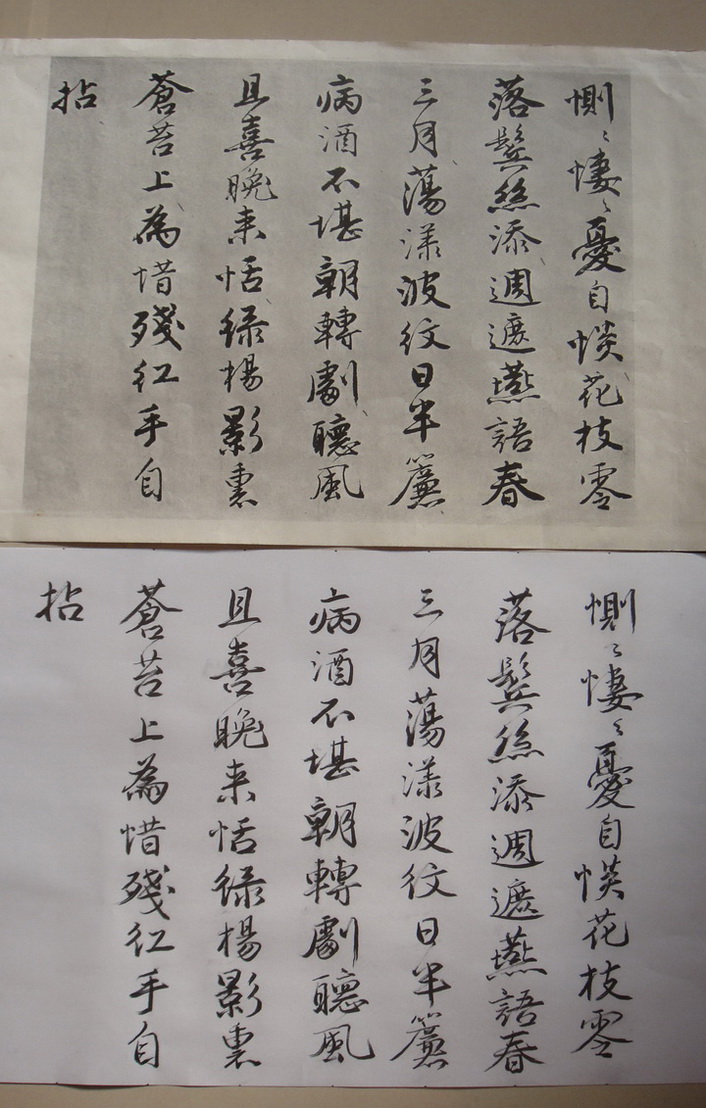 惻〻悽〻憂自惔花枝零
落鬢絲添週遮燕語春
三月蕩漾波紋日半簾
病酒不堪朝轉劇聽風
且喜晚来恬緑楊影裏
蒼苔上為惜殘紅手自
拈
惻〻悽〻憂自惔花枝零
落鬢絲添週遮燕語春
三月蕩漾波紋日半簾
病酒不堪朝轉劇聽風
且喜晚来恬緑楊影裏
蒼苔上為惜殘紅手自
拈